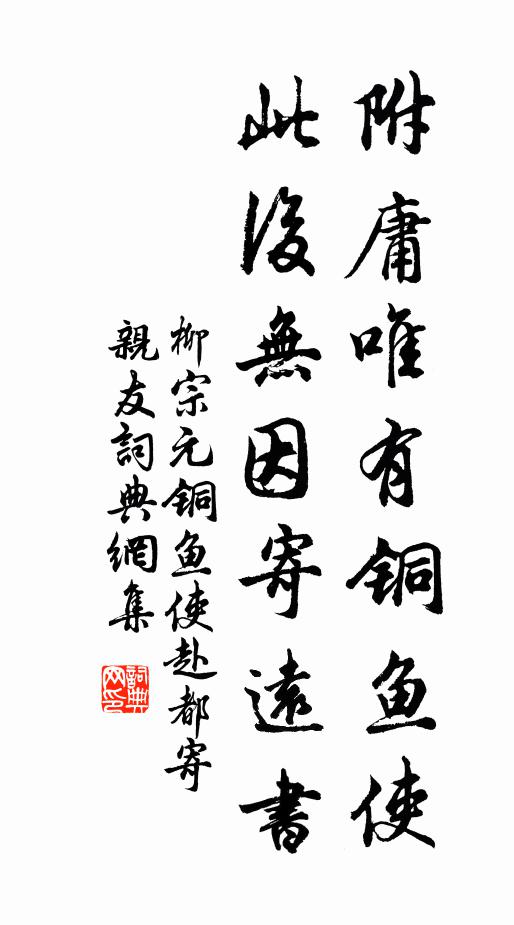 附庸唯有铜鱼使
此後無因寄遠書
柳宗元铜鱼使赴都寄
親友詞典網集
詞典
网印